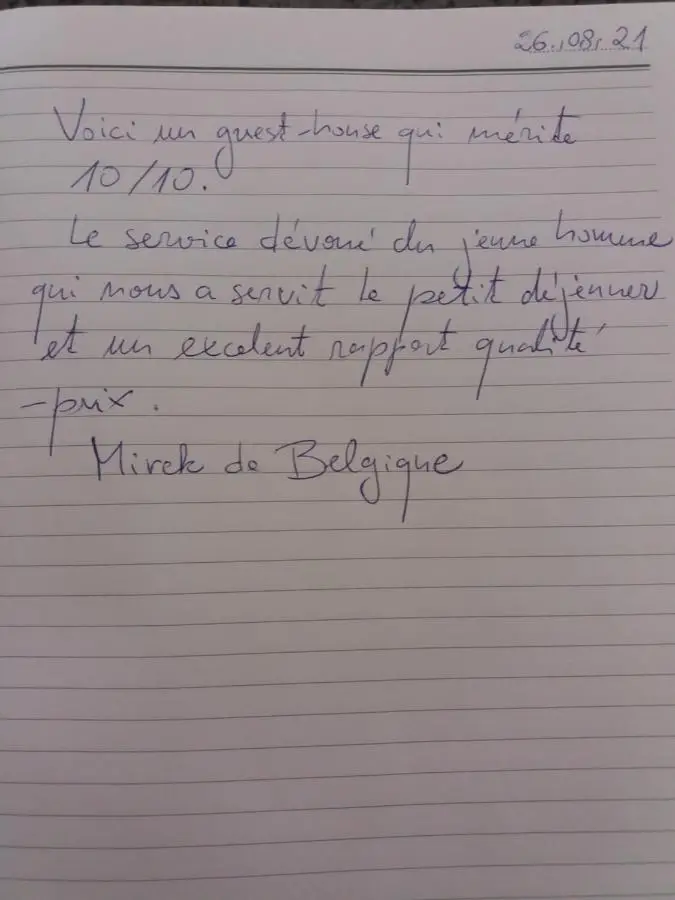 26.,08,21
Voici un guest-house qui mérite
10/10.
Le service dévoué du jeune homme
qui nous a servit le petit déjenner
et un excelent rapport qualité
-prix.
Mirek de Belgique